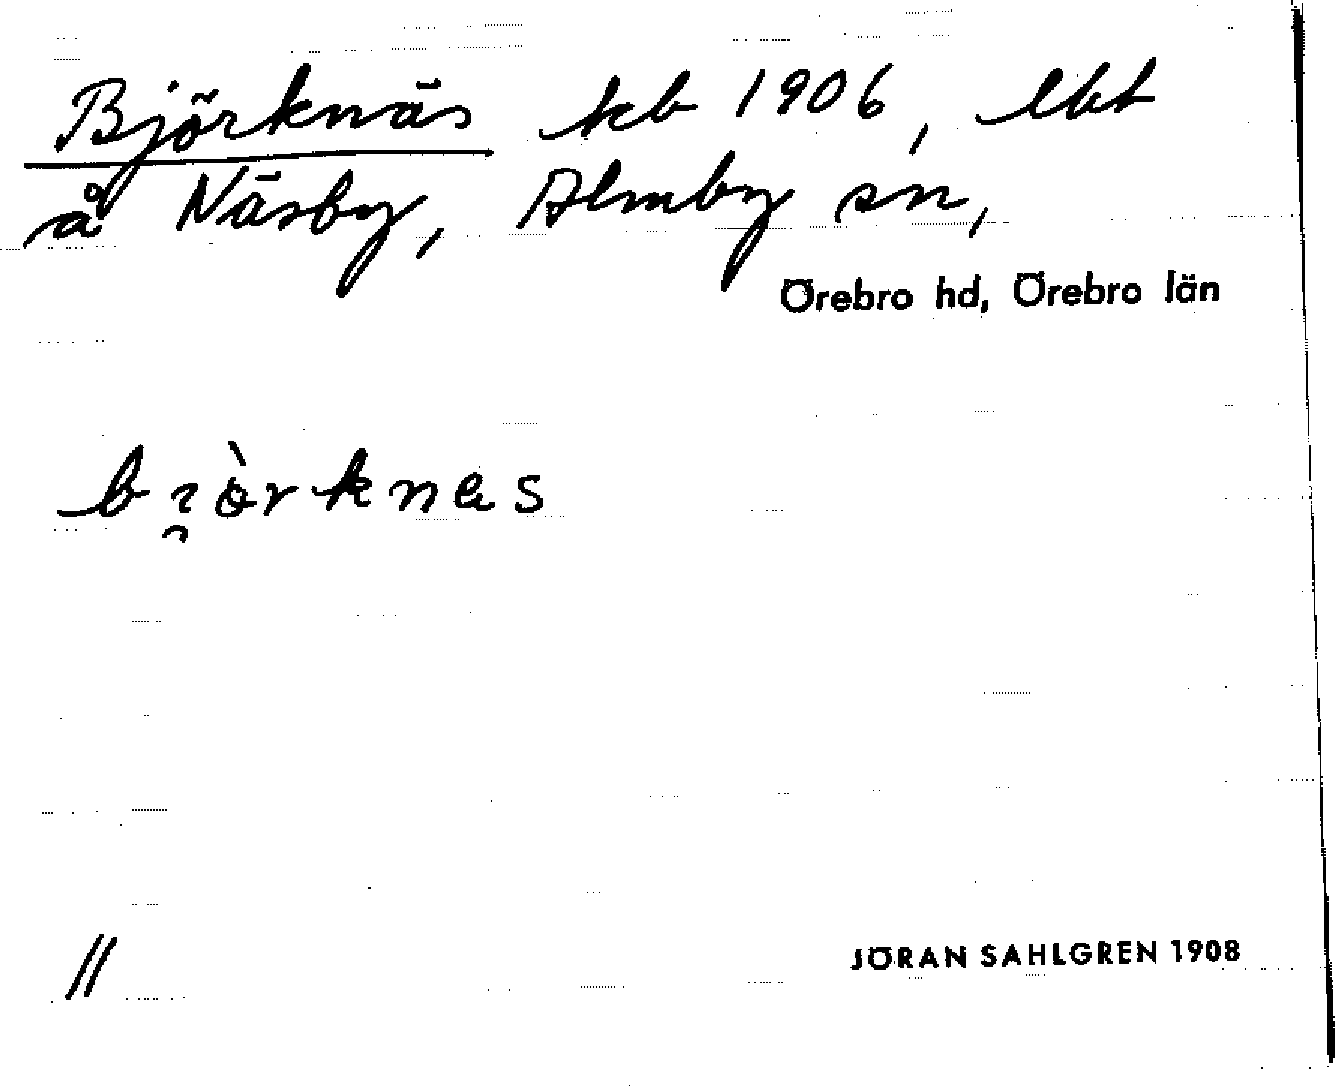 Björknäs kb 1906, lht
å Näsby, Almby sn,
Örebro hd, Örebro län
JÖRAN SAHLGREN 1908